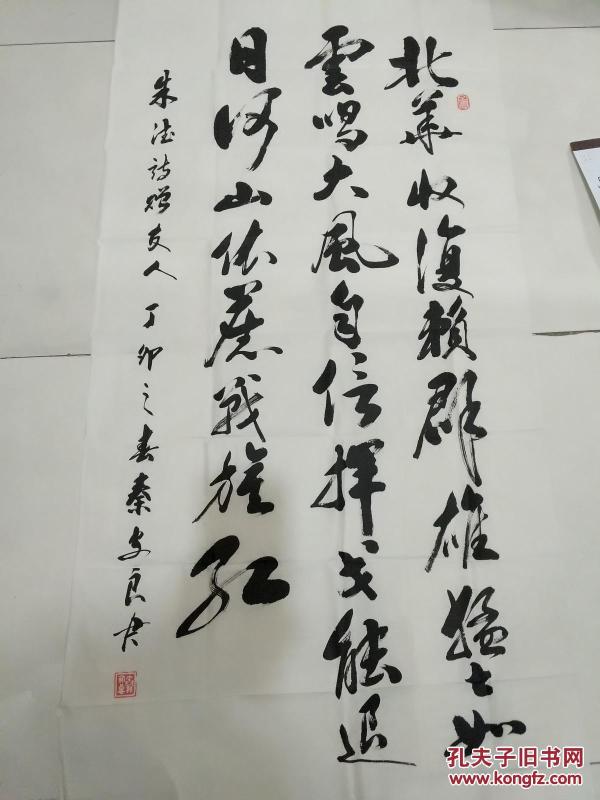 北華收復賴群雄猛士如
雲唱大風自信揮戈能退
日河山依舊戰旌紅
朱德詩贈友人 丁卯之春秦文良书
孔夫子旧书网
www.kongfz.com